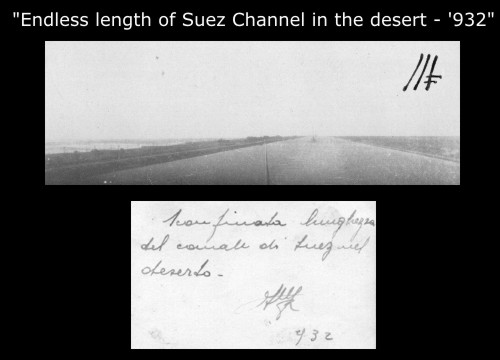 "Endless length of Suez Channel in the desert - '932"
sconfinata lunghezza
del canale di Suez nel
deserto -
932